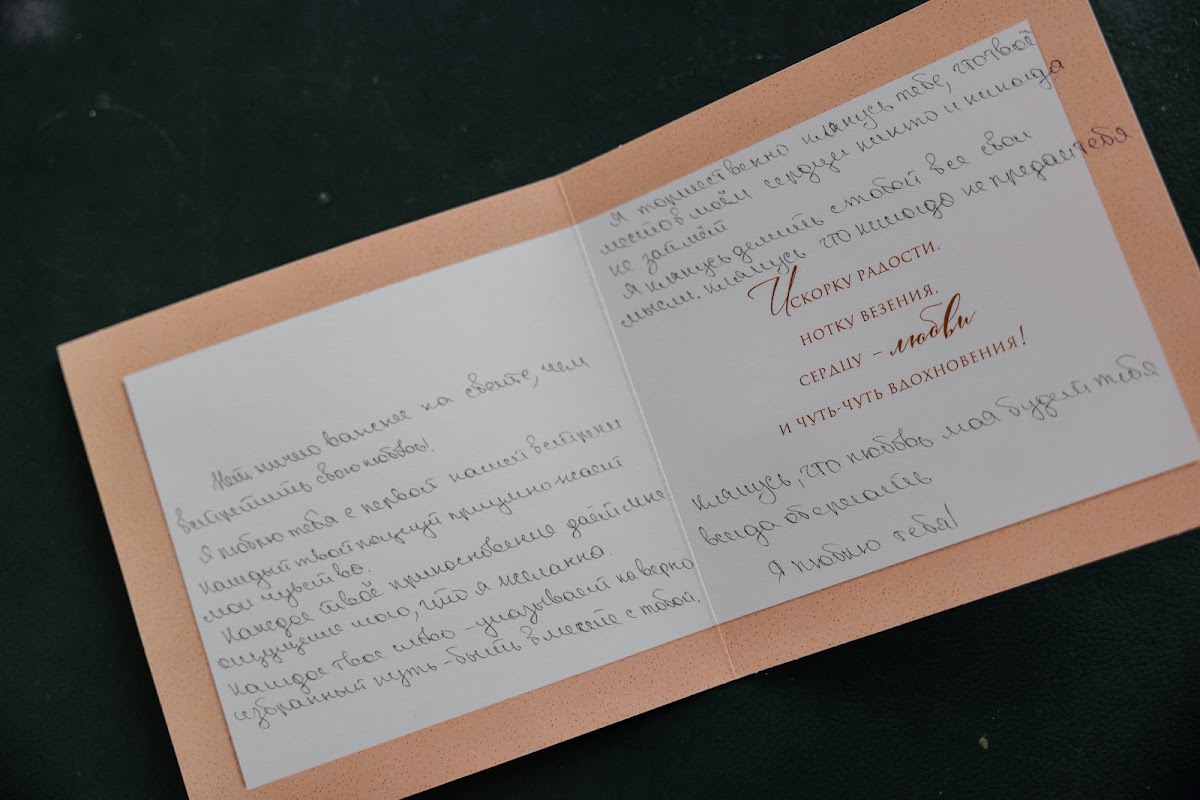 Нет ничего важнее на свете, чем
встретить свою любовь!
Я люблю тебя с первой нашей встречи
каждый твой поцелуй приумножает
мои чувства.
Каждое твоё прикосновение даёт мне
ощущение того, что я желанна.
каждое твое слово - указывает на верно
избранный путь - быть вместе с тобой.
Я торжественно клянусь тебе, что твоё
место в моём сердце никто и никогда
не займёт
Я клянусь делить с тобой все свои
мысли. клянусь что никогда не предам тебя
Искорку радости,
нотку везения,
сердцу – любви
и чуть-чуть вдохновения!
клянусь, что любовь моя будет тебя
всегда оберегать
Я люблю тебя!